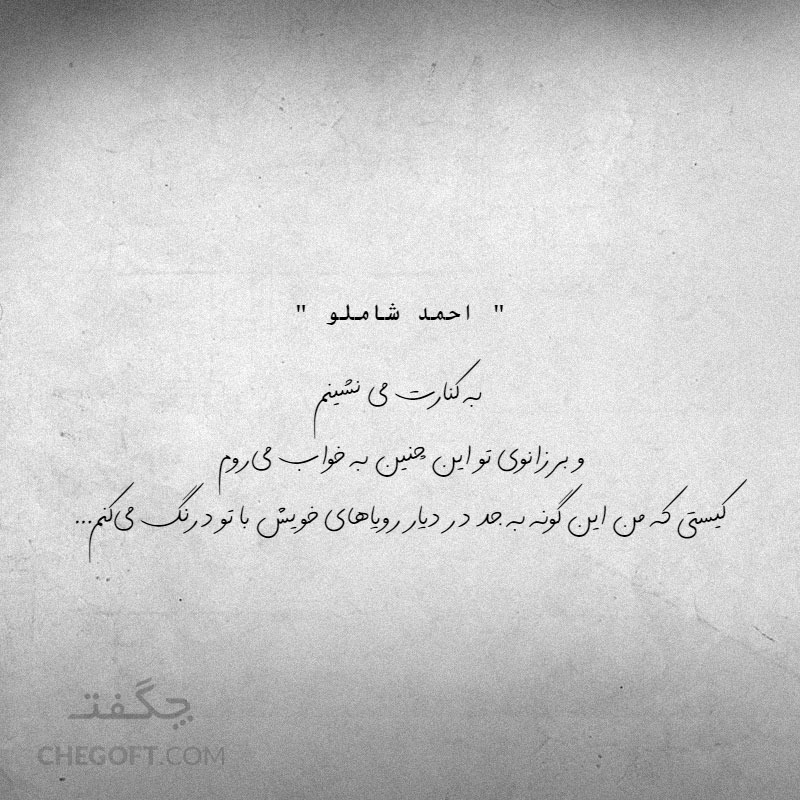 " احمد شاملو "
به کنارت می نشینم
و بر زانوی تو این چنین به خواب می‌روم
کیستی که من این گونه به جد در دیار رویاهای خویش با تو درنگ می‌کنم...
چگفت
CHEGOFT.COM